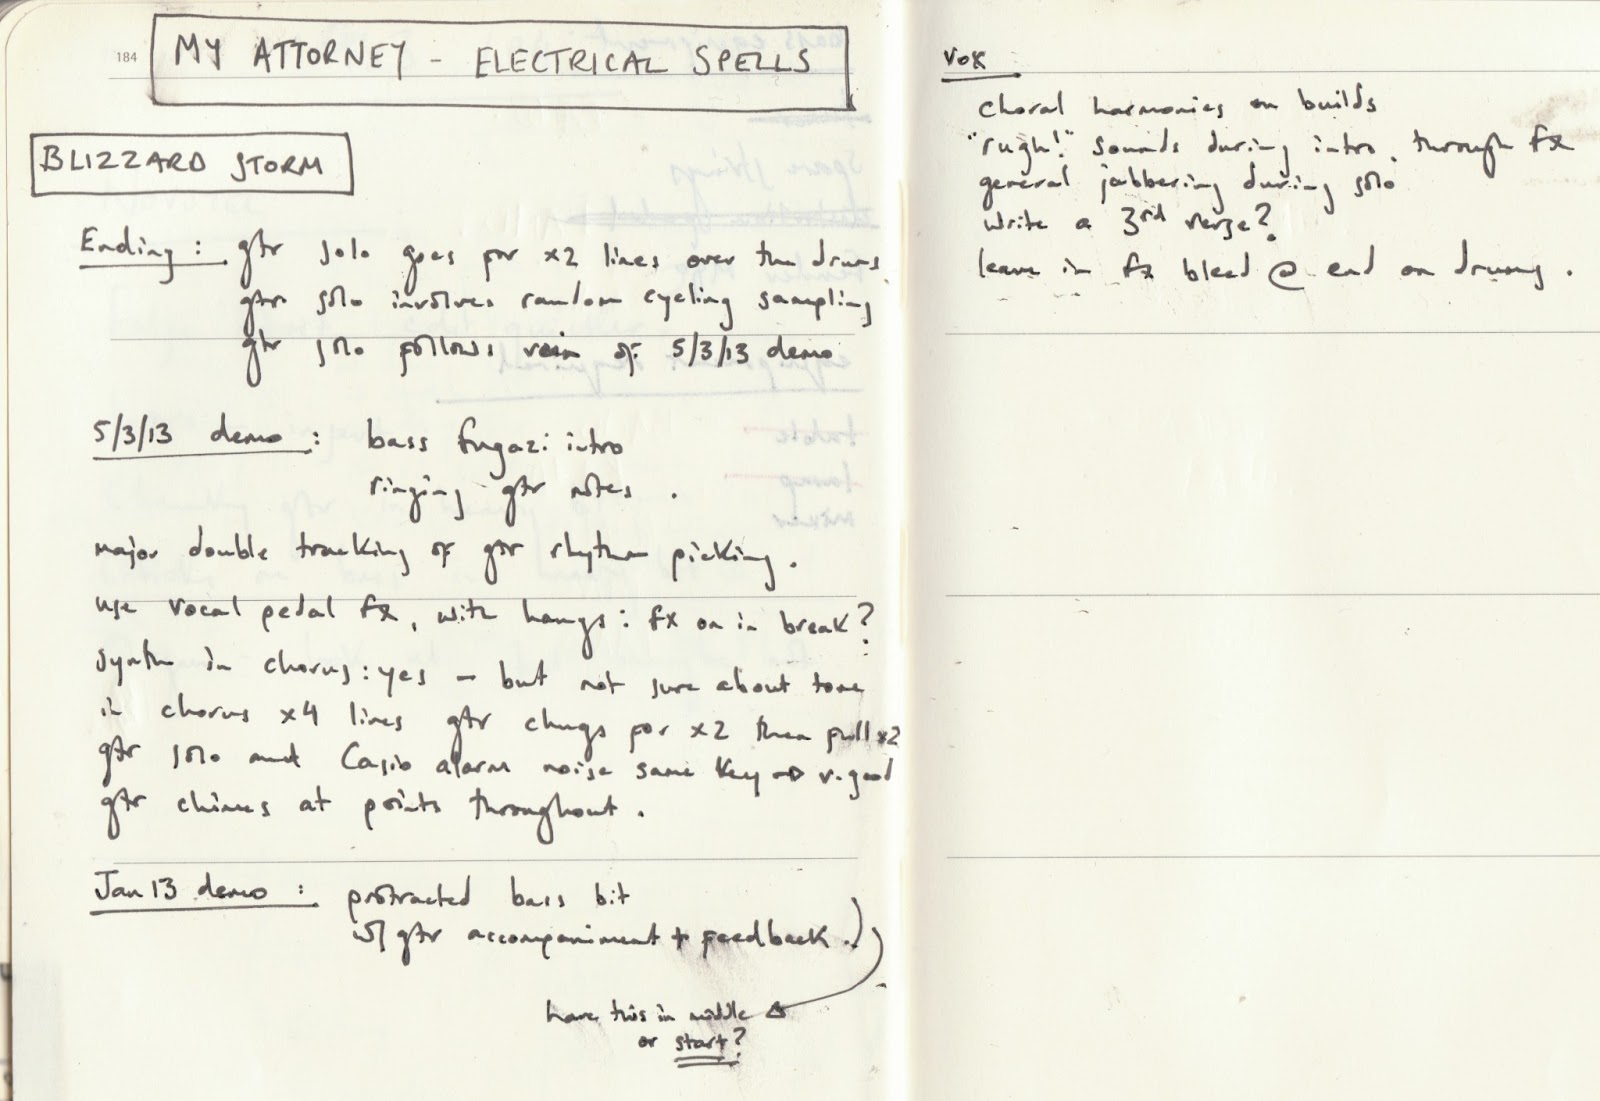 184
MY ATTORNEY - ELECTRICAL SPELLS
BLIZZARD STORM
Ending : gtr solo goes for x2 lines over the drums
gtr solo involves random cycling sampling
gtr solo follows vein of 5/3/13 demo
5/3/13 demo : bass fugazi intro
ringing gtr notes .
major double tracking of gtr rhythm picking .
use vocal pedal fx, with hangs : fx on in break?
synth in chorus : yes - but not sure about tone
in chorus x4 lines gtr chugs for x2 then full x2
gtr solo and Casio alarm noise same key → v. good
gtr chimes at points throughout .
Jan 13 demo : protracted bass bit
w/ gtr accompaniment + feedback .
have this in middle
or start?
VOX
choral harmonies on builds
"rugh!" sounds during intro, through fx
general jabbering during solo
write a 3rd verse?
leave in fx bleed @ end on drums .